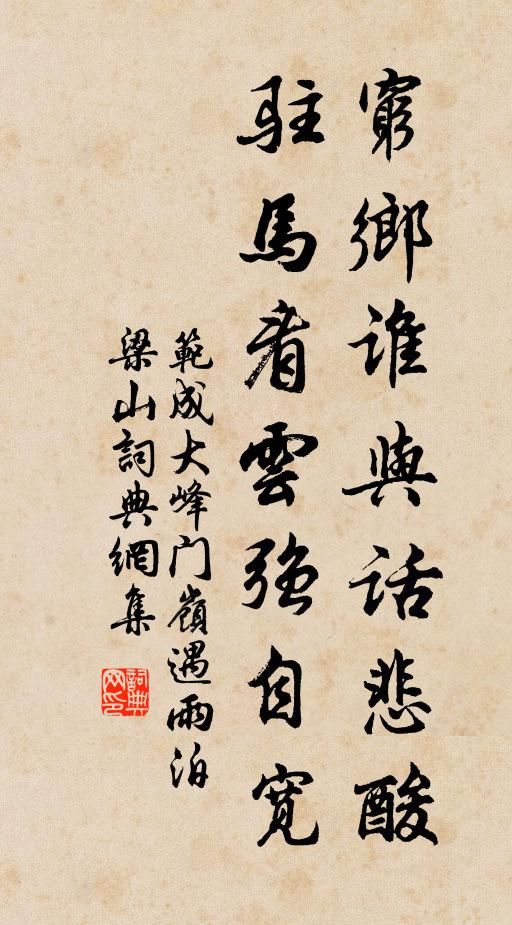 窮鄉誰與話悲酸
駐馬看雲強自寬
範成大峰门嶺遇雨泊
梁山詞典網集
詞典网印